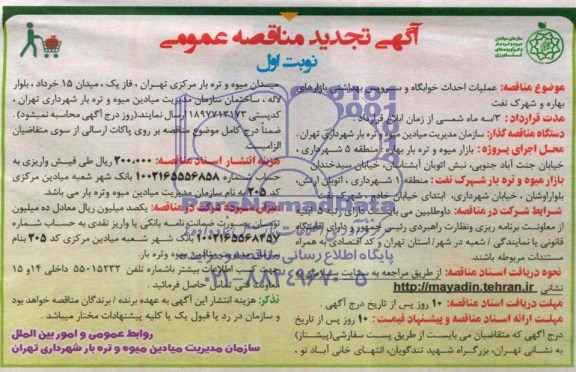 آگهی تجدید مناقصه عمومی
نوبت اول
سازمان میادین
میوه و تره بار
موضوع مناقصه: عملیات احداث خوابگاه و سرویس بهداشتی بازارهای
بهاره و شهرک نفت
مدت قرارداد : ۳/سه ماه شمسی از زمان ابلاغ قرارداد
دستگاه مناقصه گذار: سازمان مدیریت میادین میوه و تره بار شهرداری تهران .
محل اجرای پروژه : بازار میوه و تره بار بهاره : منطقه ۵ شهرداری ،
خیابان جنت آباد جنوبی، نبش اتوبان آبشناسان، خیابان سیدخندان
بازار میوه و تره بار شهرک نفت : منطقه ۱ شهرداری ، اتوبان ارتش،
بلواراوشان ، خیابان شهرداری، ابتدای خیابان
شرایط شرکت در مناقصه: داوطلبین می بایست دارای رتبه ۵ ابنیه
از معاونت برنامه ریزی ونظارت راهبردی رئیس جمهور و دارای اقامتگاه
قانونی یا نمایندگی / شعبه در شهر/ استان تهران و کد اقتصادی به همراه
مستندات مربوطه باشند.
نحوه دریافت اسناد مناقصه: از طریق مراجعه به سایت سازمان به
نشانی http://mayadin.tehran.ir
مهلت دریافت اسناد مناقصه: ۱۰ روز پس از تاریخ درج آگهی .
مهلت ارائه اسناد مناقصه و پیشنهاد قیمت : ۱۰ روز پس از تاریخ
درج آگهی که متقاضیان می بایست از طریق پست سفارشی(پیشتاز)
به نشانی تهران، بزرگراه شهید تندگویان، انتهای خانی آباد نو ،
میدان میوه و تره بار مرکزی تهران ، فاز یک ، میدان ۱۵ خرداد ، بلوار
لاله ، ساختمان سازمان مدیریت میادین میوه و تره بار شهرداری تهران ،
کدپستی ۱۸۹۷۷۱۳۱۷۳ ارسال نمایند.(روز درج آگهی محاسبه نمیشود) .
ضمناً درج کامل موضوع مناقصه بر روی پاکات ارسالی از سوی متقاضیان
الزامیست.
هزینه انتشار اسناد مناقصه: ۲۰۰.۰۰۰ ریال طی فیش واریزی به
حساب شماره ۱۰۰۲۱۶۵۵۵۶۸۵۸ بانک شهر شعبه میادین مرکزی
کد ۲۰۵ به نام سازمان مدیریت میادین میوه وتره بار می باشد.
میزان سپرده شرکت در مناقصه: یکصد میلیون ریال معادل ده میلیون
تومان بصورت ضمانت نامه بانکی یا واریز نقدی به حساب شماره
۱۰۰۲۱۶۵۵۶۸۲۵۷ بانک شهر شعبه میادین مرکزی کد ۲۰۵ بنام
سازمان مدیریت میادین میوه و تره بار.
جهت کسب اطلاعات بیشتر باشماره تلفن ۵۵۰۱۵۲۳۲ داخلی ۱۴ و ۱۵
حاصل فرمائید .
تذکر: هزینه انتشار این آگهی به عهده برنده / برندگان مناقصه خواهد بود
و سازمان در رد یا قبول یک یا کلیه پیشنهادات مختار میباشد .
روابط عمومی و امور بین الملل
سازمان مدیریت میادین میوه و تره بار شهرداری تهران
ParsNamadData
پایگاه اطلاع رسانی
۰۲۱-۸۸۳۴۹۶۷۰-۵